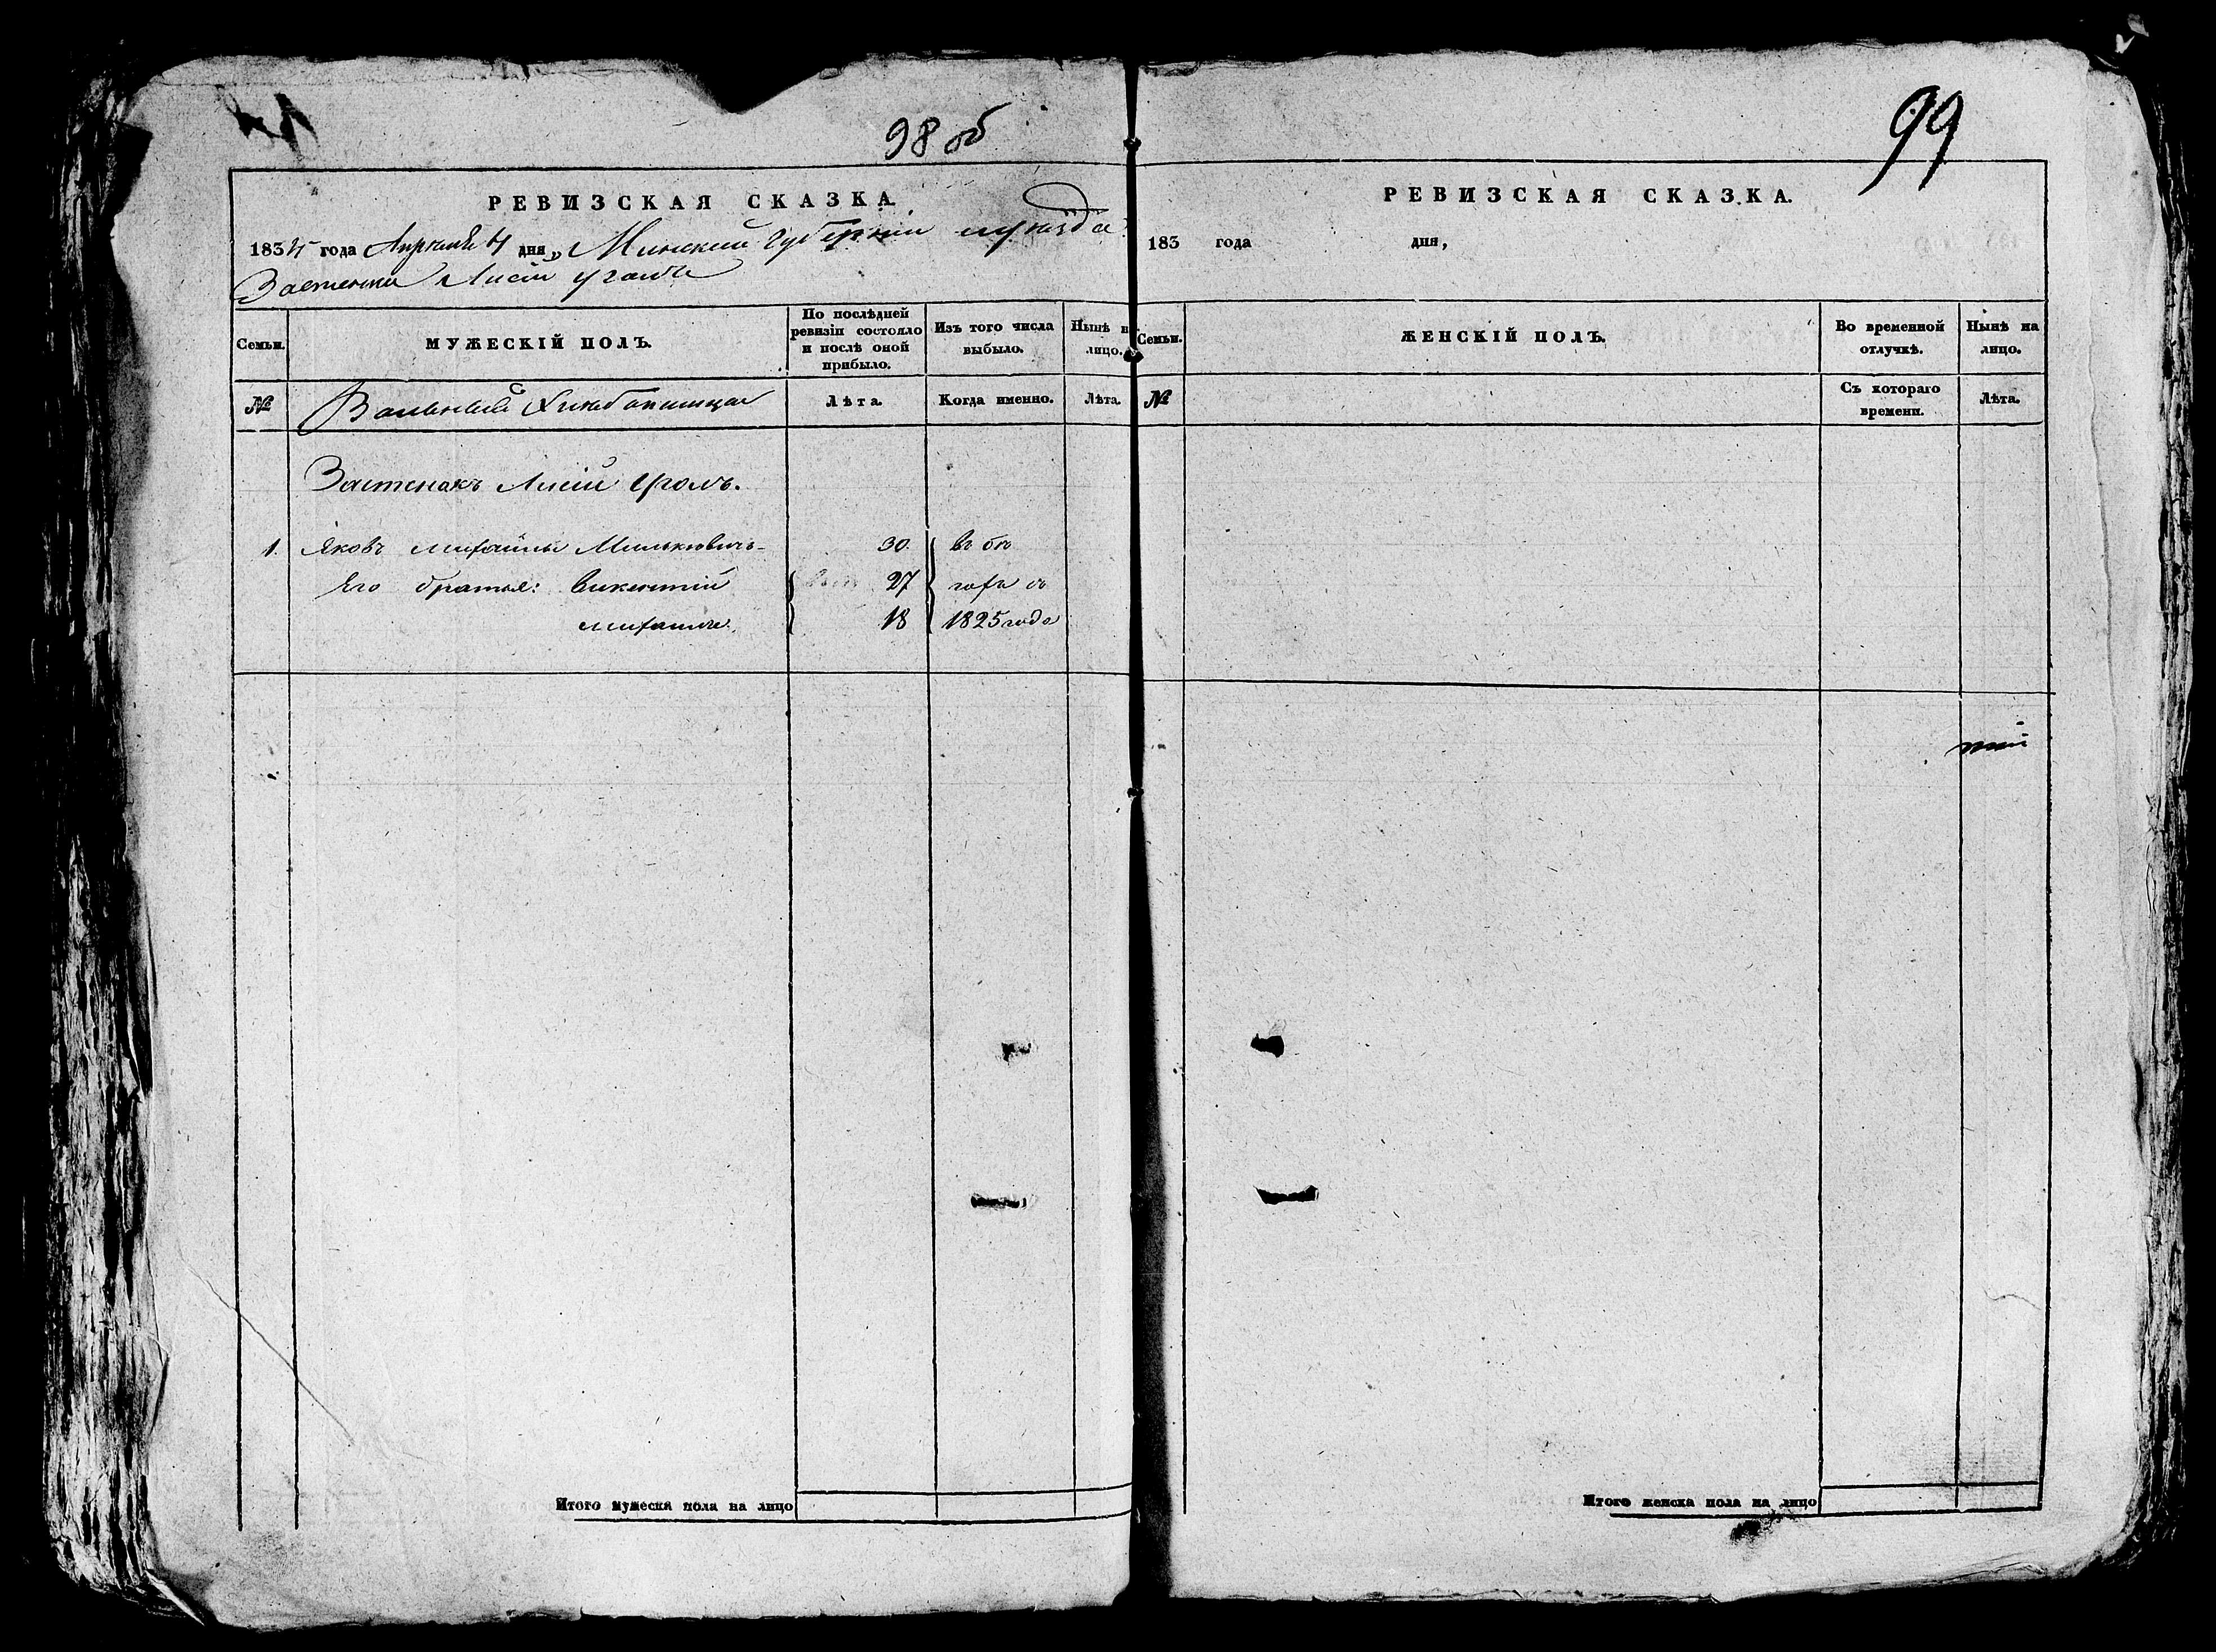 98 об
РЕВИЗСКАЯ СКАЗКА.
1834 года Апреля 4 дня, Минской губерніи и уезда
Застенка Лисій уголъ
Семьи.
МУЖЕСКІЙ ПОЛЪ.
По послѣдней ревизіи состояло и послѣ оной прибыло.
Изъ того числа выбыло.
Нынѣ на лицо.
№
Вольный Хлебопашца
Лѣта.
Когда именно.
Лѣта.
Застенокъ Лисій Уголъ.
1. Яковъ Михайлы Милькевичъ 30. въ бе
Его братья: Викентій 27 гахъ съ
Михаилъ. 18 1825 года
Итого мужеска пола на лицо
99
РЕВИЗСКАЯ СКАЗКА.
183 года дня,
Семьи.
ЖЕНСКІЙ ПОЛЪ.
Во временной отлучкѣ.
Нынѣ на лицо.
№
Съ котораго времени.
Лѣта.
Итого женска пола на лицо